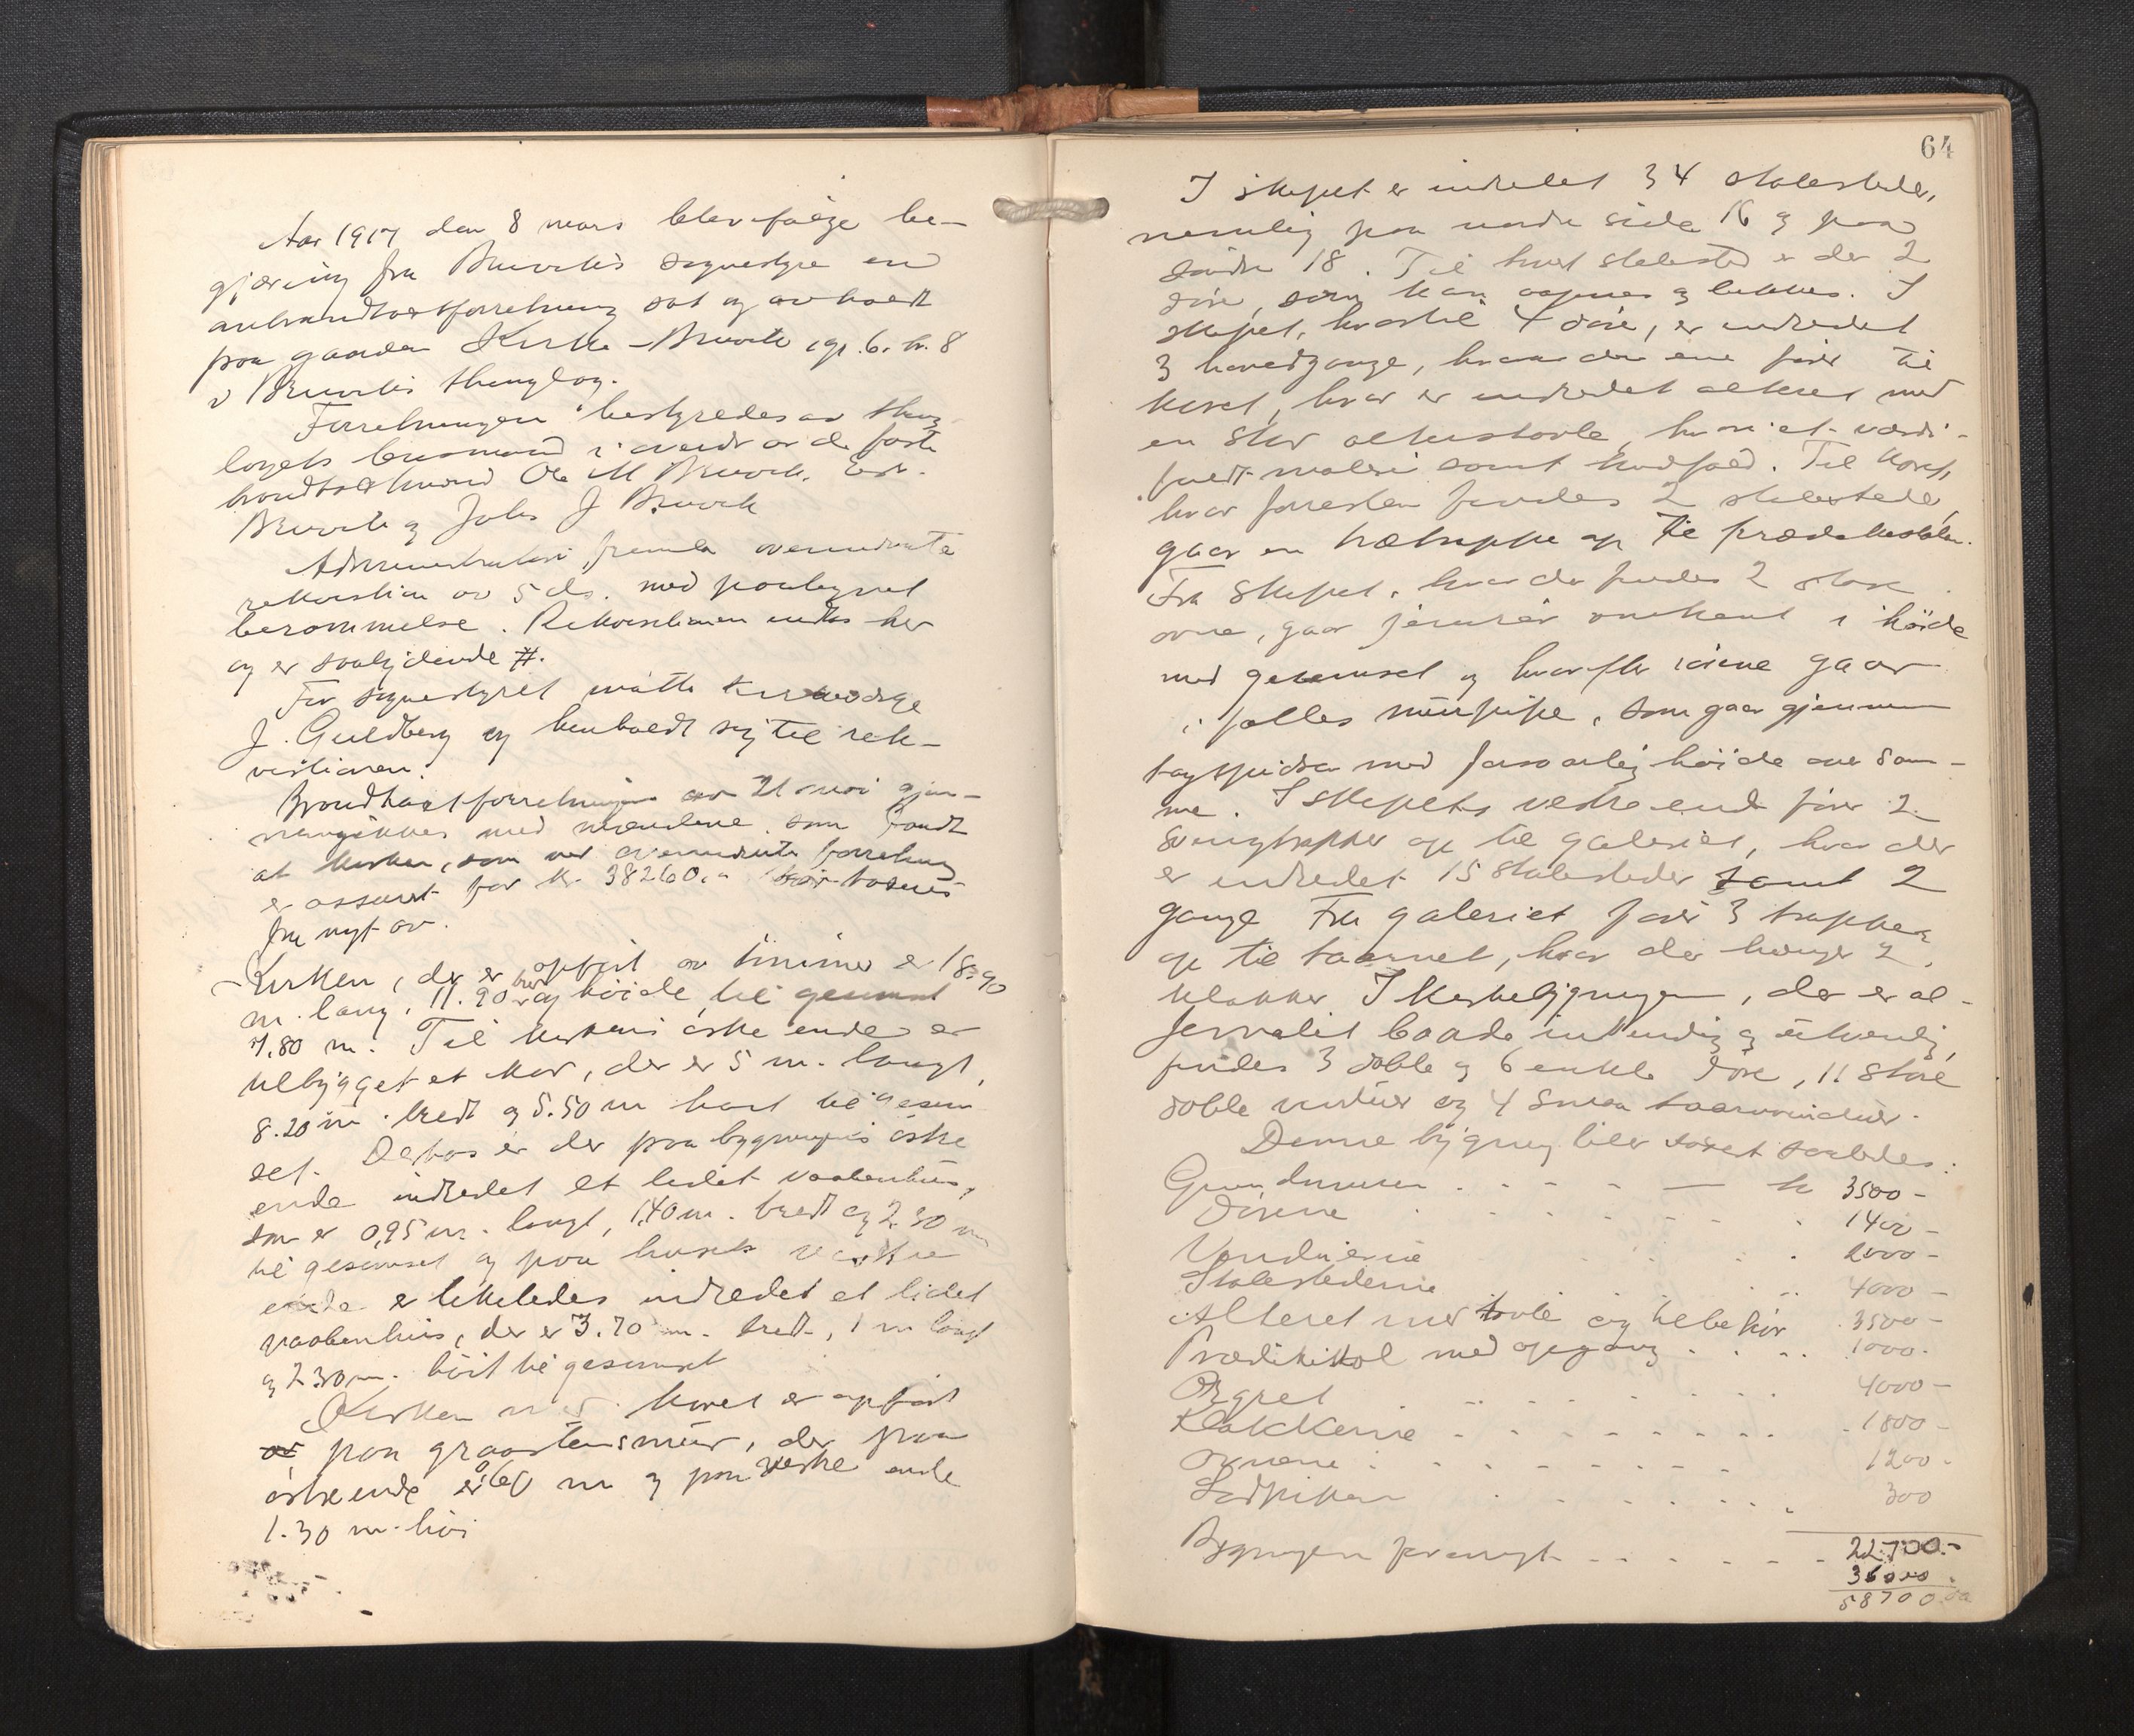 Aar 1917 den 8 mars blev følge be-
gjæring fra Bruviks sognestyre en
anbrandtakstforretning sat og avholdt
paa gaarden Kirke-Bruvik, gr. 6. br. 8
i Bruviks thinglag.
Forretningen bestyredes av thing-
lagets lensmand i overvær av de faste
brandtakstmænd Ole M Bruvik,
Bruvik og Johs J Bruvik
Administrator fremla overnævnte
rekvisition av 5 ds. med paategnet
berammelse. Rekvisitionen indtas her
og er saalydende #.
For sognestyret møtte kirkeværge
J. Guldberg og henholdt sig til rek-
visitionen.
Brandtakstforretningen av 21 mai gjen-
nemgikkes med mændene, som fandt
at kirken, som ved ovennævnte forretning
er assuret for kr. 38260,- bør takseres
fra nyt av.
Kirken, der er opført av timmer er 18.90
m. lang, 11.90 bred og høide til gesimset
7.80 m. Til kirkens østre ende er
tilbygget et kor, der er 5 m. langt,
8.20 m. bredt og 5.50 m høit til gesim-
set. Derhos er der paa bygningens østre
ende indredet et lidet vaabenhus,
som er 0,95 m. langt, 1,40 m. bredt og 2.30 m
til gesimset og paa husets vestre
ende er likeledes indredet et lidet
vaabenhus, der er 3.70 m. bredt, 1 m langt
og 2.30 m. høit til gesimset
Kirken med koret er opført
av paa graastensmur, der paa
østre ende er 0,60 m og paa vestre ende
1.30 m. høi
64
I skipet er indredet 34 stolesteder,
nemlig paa nordre side 16 og paa
søndre 18. Til hvert stolested er der 2
døre, som kan aapnes og lukkes. I
skipet, hvortil 4 døre, er indredet
3 hovedgange, hvorav den ene fører til
koret, hvor er indredet alteret med
en stor altertavle, hvori et værdi-
fuldt maleri samt knæfald. Til koret,
hvor forresten findes 2 stolesteder,
gaar en trætrappe op til prædikestolen.
Fra skipet, hvor der findes 2 store
ovne, gaar jernrør omkrent i høide
med gesimset og hvorefter rørene gaar
i fælles murpipe, som gaar gjennem
tagspidsen med forsvarlig høide over sam-
me. I skipets vestre ende fører 2
svingtrapper op til galeriet, hvor der
er indredet 15 stolesteder samt 2
gange Fra galeriet fører 3 trapper
op til taarnet, hvor der hænger 2
klokker I kirkebygningen, der er ol-
jemalet baade indvendig og utvendig,
findes 3 doble og 6 enkle døre, 11 store
doble vinduer og 4 smaa taarnvinduer.
Denne bygning blev taxert saaledes:
Grundmuren . . - - — kr 3500 -
Dørene . . . . - - . 1400 -
Vinduerne . . . . 2000 -
Stolestederne . . . . 4000 -
Alteret med tavle og tilbehør . 3500 -
Prædikestol med opgang . . . . 1000.
Orgel . . . . . 4000 -
Klokkerne - . - - - . . . - 1800 -
Ovnene . . - - - - - 1200 -
Ledpipen . . . . . . 300
Bygningen forøvrigt - - - . - - - 22700.-
36000.
58700.00